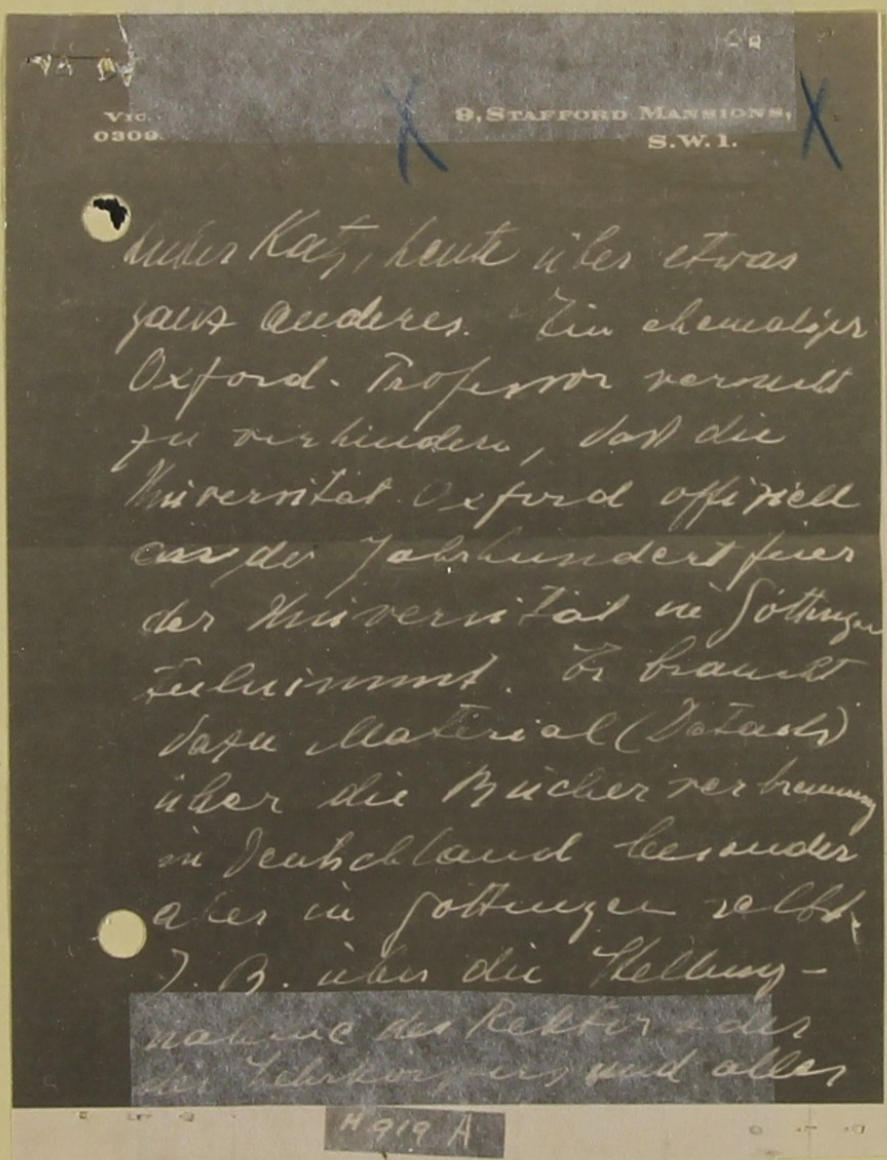 Vic.
0309
9, STAFFORD MANSIONS,
S.W.1.
Lieber Katz, heute über etwas
ganz anderes. Ein ehemaliger
Oxford-Professor versucht
zu verhindern, daß die
Universität Oxford offiziell
an der Jahrhundertfeier
der Universität in Göttingen
teilnimmt. Er braucht
dazu Material (Datails)
über die Bücherverbrennung
in Deutschland besonder
aber in Göttingen selbst.
Z. B. über die Stellung-
nahme des Rektors oder
des Lehrkörpers und alles
H 919 A